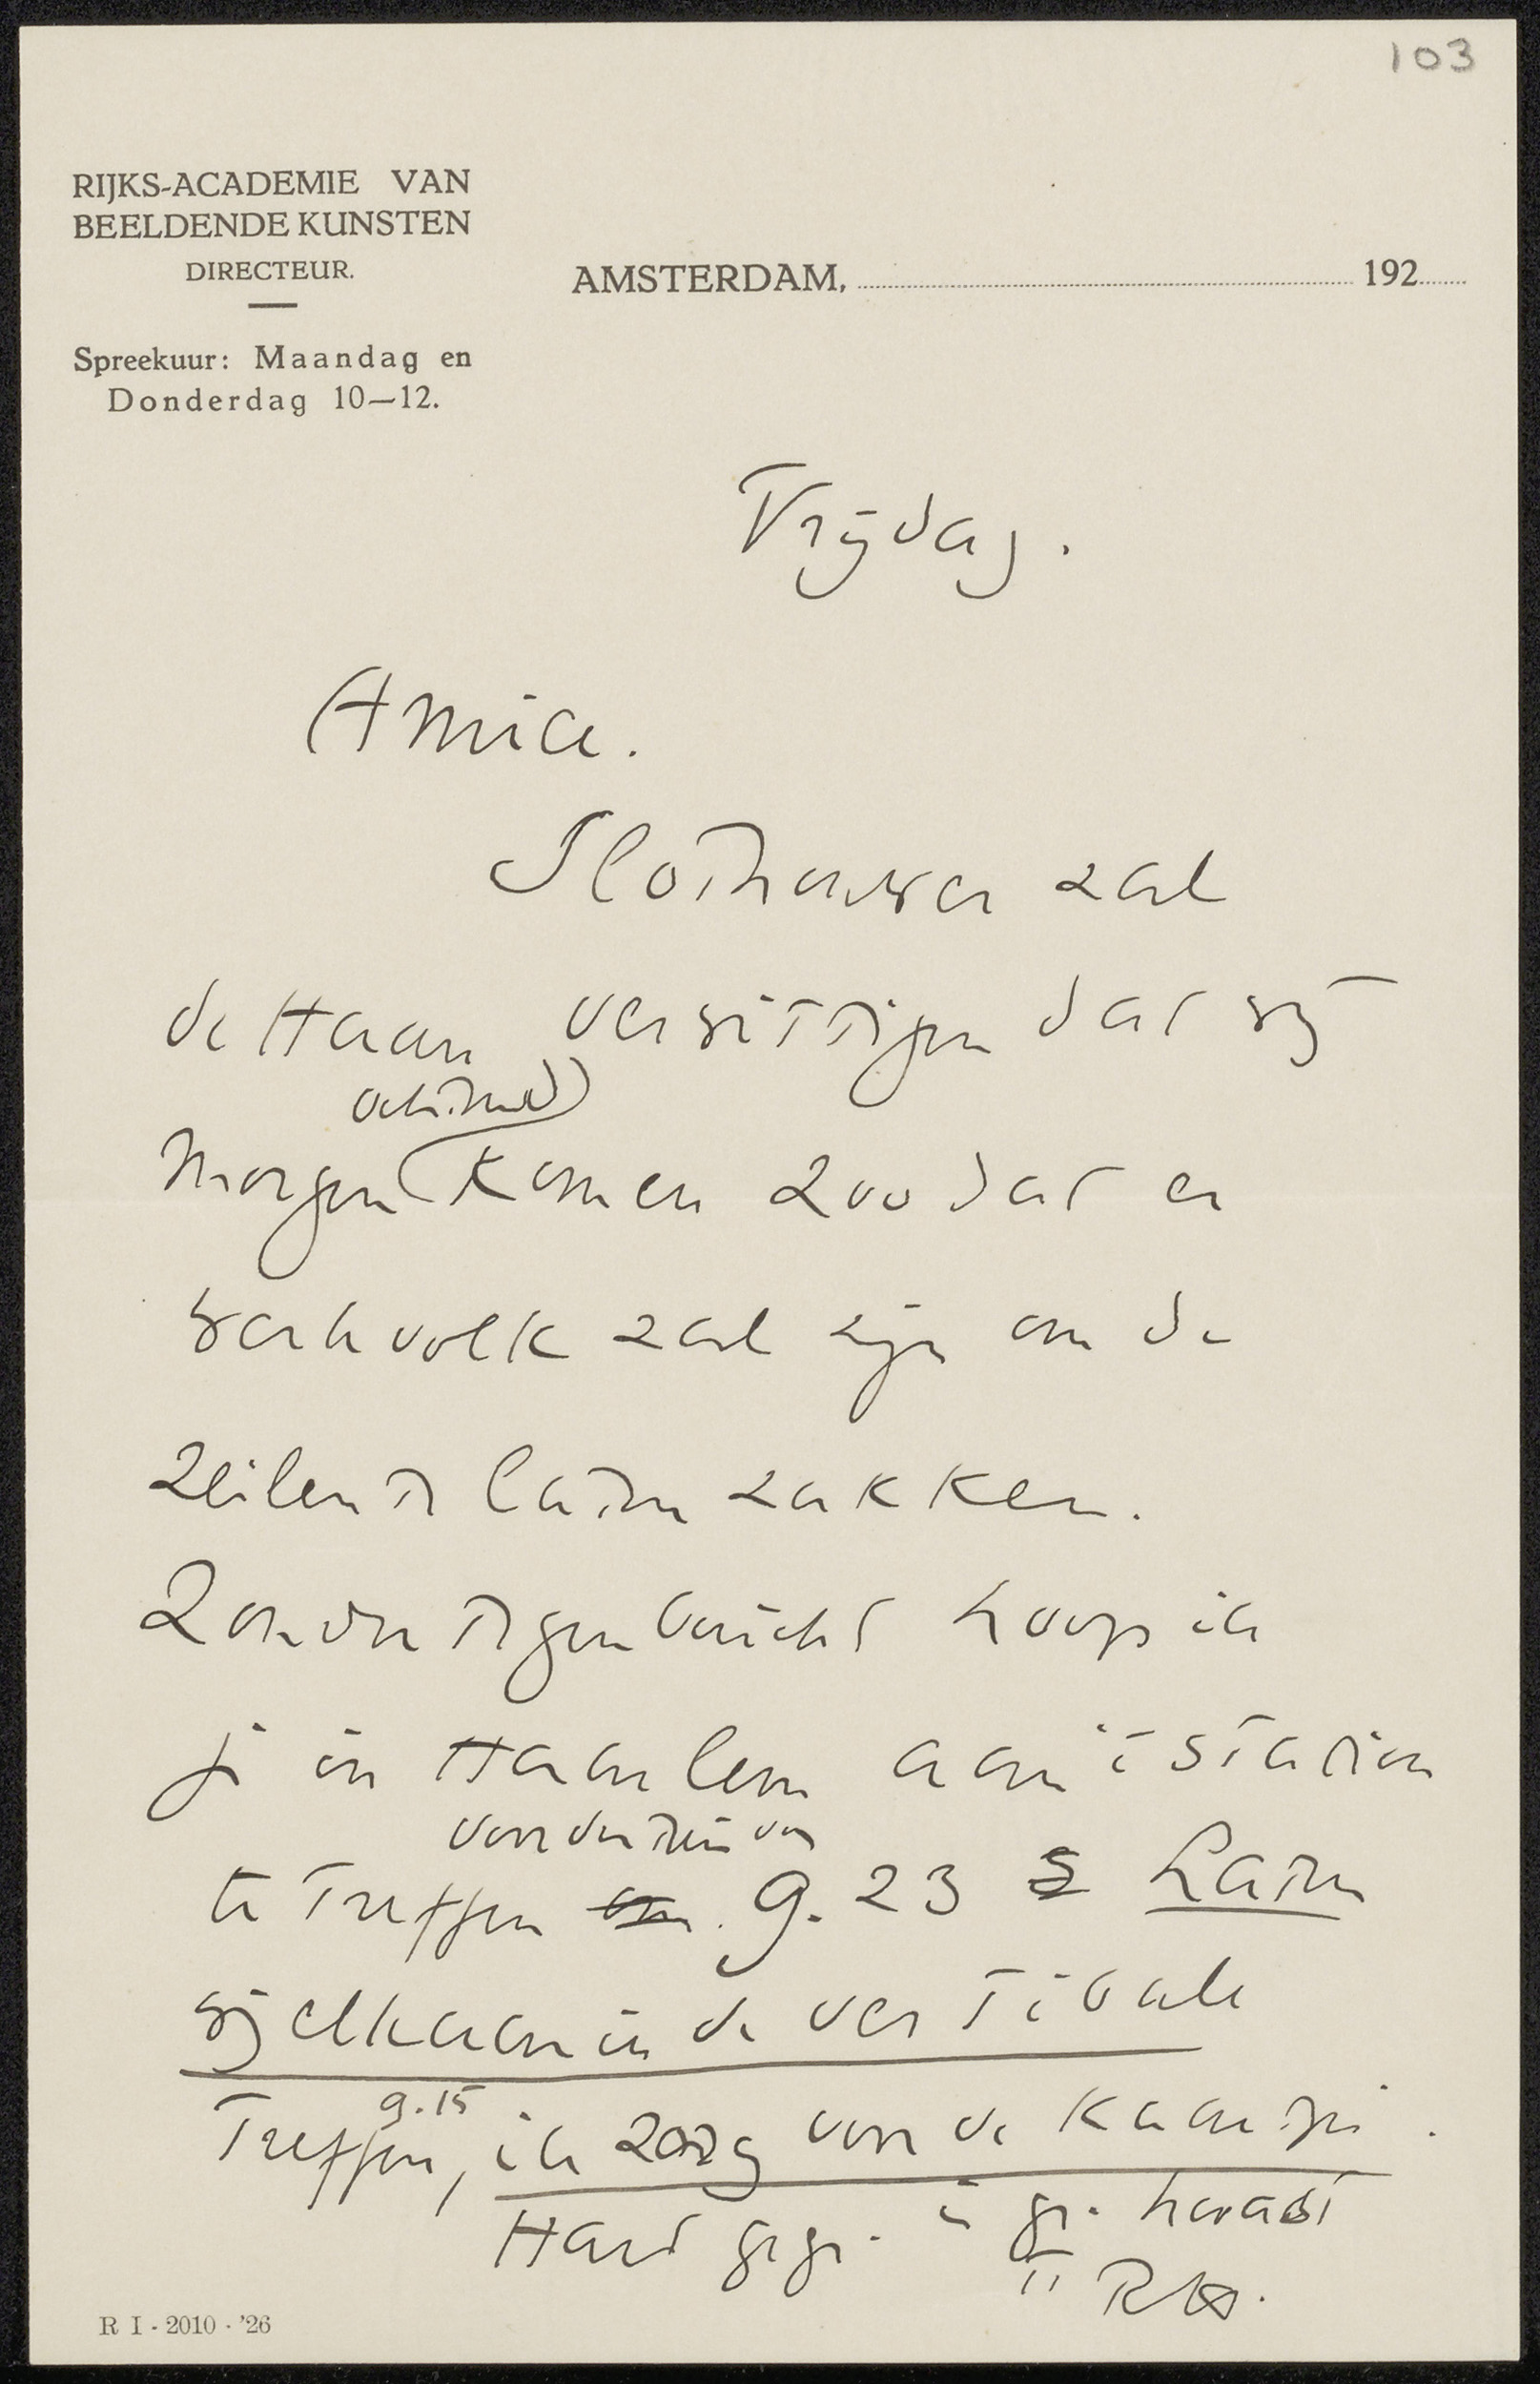 103
RIJKS-ACADEMIE VAN
BEELDENDE KUNSTEN
DIRECTEUR.
AMSTERDAM, 192
Spreekuur: Maandag en
Donderdag 10—12.
Vrijdag.
Amice.
Slothouwer zal
de Haan verwittigen dat wij
ochtend
morgen komen zoodat er
werkvolk zal zijn om de
zeilen te laten zakken.
Zonder tegenbericht hoop ik
je in Haarlem aan 't station
te treffen 9.23 Laten
wij elkaar in de vestibule
treffen, 9.15 ik zorg voor de kaartjes.
Hart. gegr. in gr. haast
tt RH.
R I - 2010 - '26